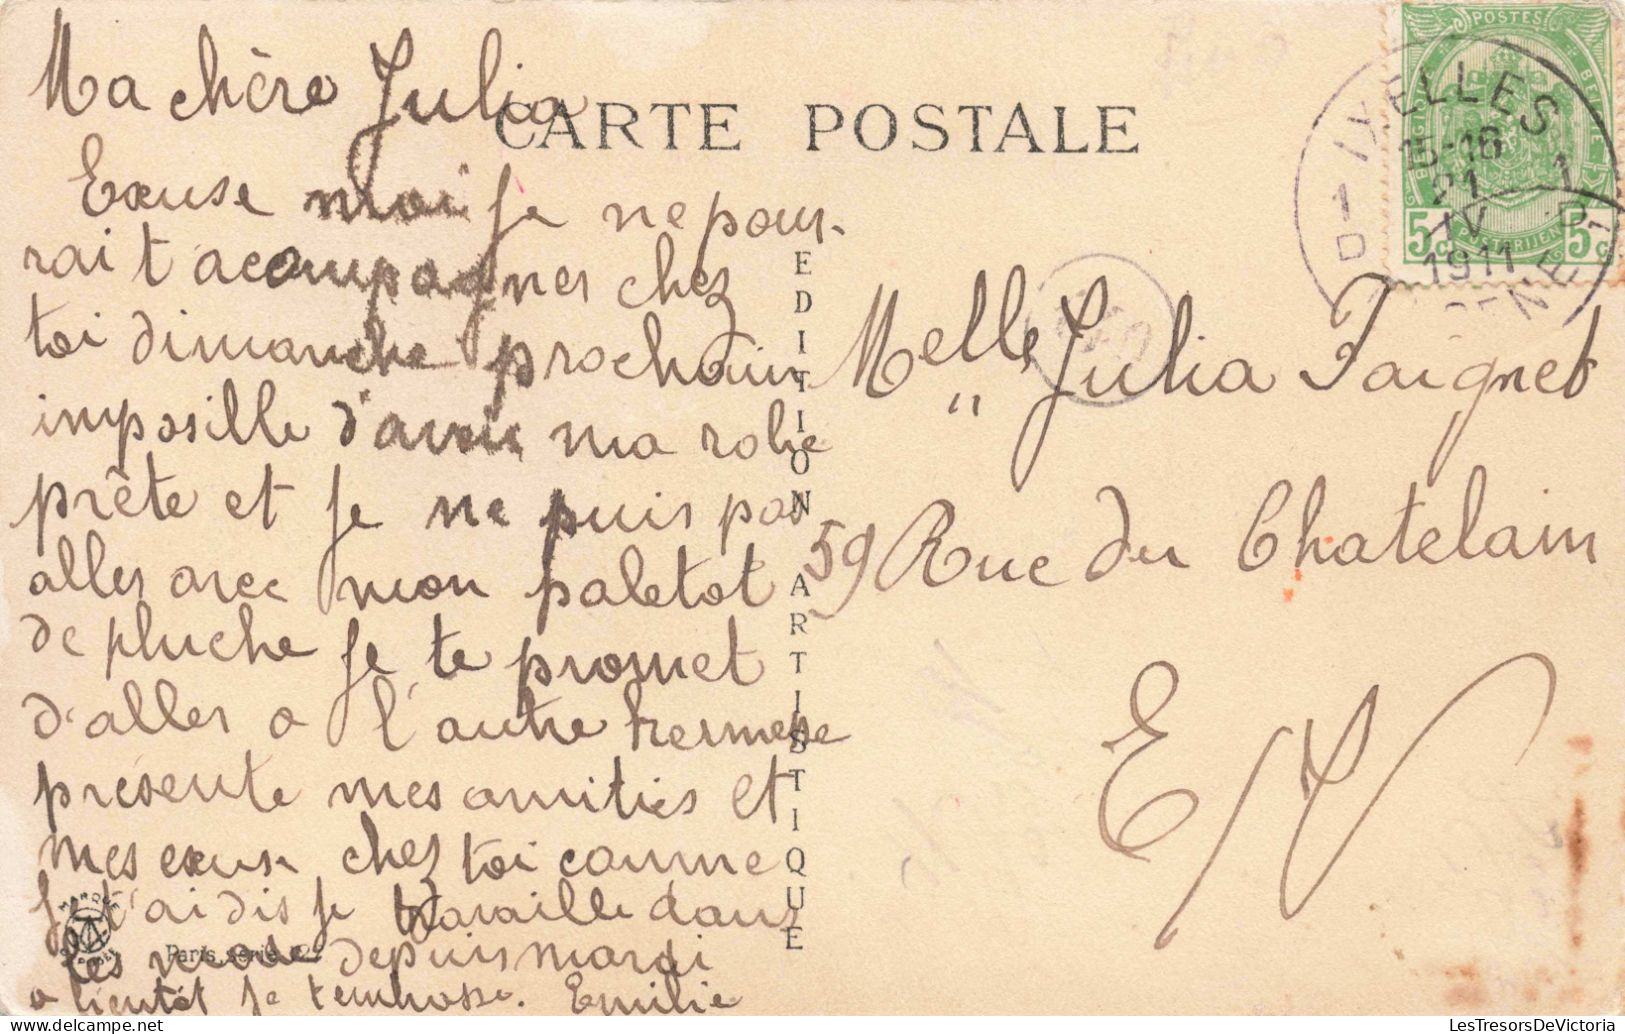 Ma chère Julia
CARTE POSTALE
Excuse moi je ne pour-
rait acompagner chez
toi dimanche prochain
imposille d'avoir ma robe
prête et je ne puis pas
aller avec mon paletot
de pluche je te promet
d'aller a l'autre kermesse
présente mes amitiés et
mes excuse chez toi comme
je t'ai dis je travaille dans
les mode depuis mardi
a bientôt je t'embrasse. Emilie
EDITION ARTISTIQUE
MARQUE
Paris, série
POSTES
BELGIQUE
BELGIE
POSTERIJEN
5c
5c
IXELLES
15-16
21
IV
1911
1
D
1
D
Melle Julia Taignet
59 Rue du Chatelain
E/V
LesTresorsDeVictoria
delcampe.net
LesTresorsDeVictoria